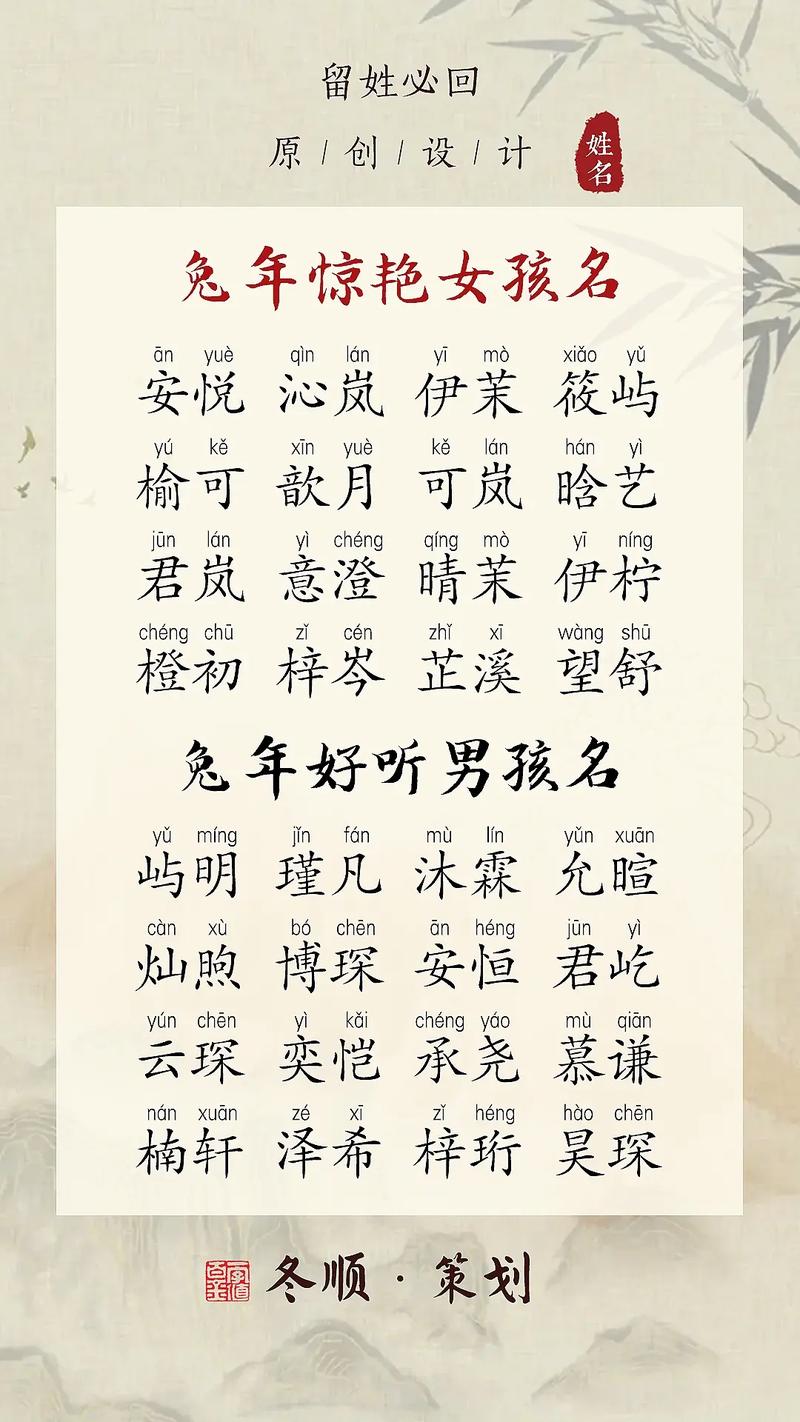 留姓必回
原/创/设/计
姓名
兔年惊艳女孩名
ān yuè qìn lán yī mò xiǎo yǔ
安悦 沁岚 伊茉 筱屿
yú kě xīn yuè kě lán hán yì
榆可 歆月 可岚 晗艺
jūn lán yì chéng qíng mò yī níng
君岚 意澄 晴茉 伊柠
chéng chū zǐ cén zhǐ xī wàng shū
橙初 梓岑 芷溪 望舒
兔年好听男孩名
yǔ míng jǐn fán mù lín yǔn xuān
屿明 瑾凡 沐霖 允暄
càn xù bó chēn ān héng jūn yì
灿煦 博琛 安恒 君屹
yún chēn yì kǎi chéng yáo mù qiān
云琛 奕恺 承尧 慕谦
nán xuān zé xī zǐ héng hào chēn
楠轩 泽希 梓珩 昊琛
冬顺·策划